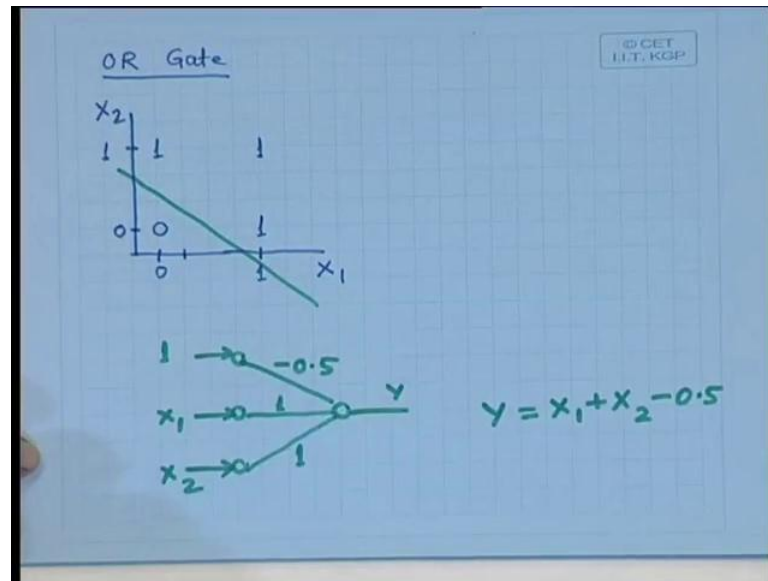 OR Gate
© CET
I.I.T. KGP
X2
1 1 1
0 0 1
0 1 X1
1 -0.5
x1 1 Y
x2 1
Y = x1 + x2 - 0.5